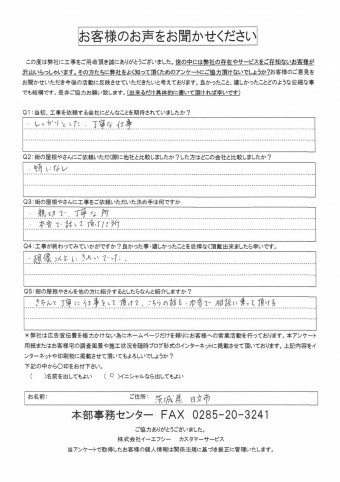 お客様のお声をお聞かせください
この度は弊社に工事をご用命頂き誠にありがとうございました。世の中には弊社の存在やサービスをご存知ないお客様が
沢山いらっしゃいます。その方たちに弊社をよく知って頂くためのアンケートにご協力頂けないでしょうか?お客様のご意見を
お聞かせいただき今後の活動に反映させていただきたいと考えております。良かったこと、嬉しかったことどのような些細な事
でも結構です。是非ご協力お願い致します。(出来るだけ具体的に書いて頂ければ幸いです)
Q1:当初、工事を依頼する会社にどんなことを期待されていましたか?
・しっかりとした、丁寧な仕事
Q2:街の屋根やさんにご依頼いただく際に他社と比較しましたか?した方はどこと比較しましたか?
・特になし
Q3:街の屋根やさんに工事をご依頼いただいた決め手は何ですか
・親切で、丁寧な所
・本音で話して頂けた所
Q4:工事が終わってみていかがですか?良かった事・嬉しかったことを忌憚なく頂戴出来ましたら幸いです。
・想像以上にきれいでした。
Q5:街の屋根やさんを他の方に紹介するとしたらなんと紹介しますか?
きちんと丁寧に仕事をして頂けて、こちらの話も、本音で相談に乗って頂ける
*弊社は広告宣伝費を極力かけない為にホームページだけを頼りにお客様への営業活動を行っております。本アンケート
用紙またはお客様宅の調査風景や施工状況を随時ブログ形式のインターネットに掲載させて頂いております。上記内容をイ
ンターネットや印刷物に掲載させて頂いてもよろしいでしょうか?
下記の中から〇印をお付下さい。
( )名前を出してもよい (〇)イニシャルなら出してもよい
お名前: ご住所: 茨城県 日立市
本部事務センター FAX 0285-20-3241
ご協力ありがとうございました。
株式会社イーエフシー カスタマーサービス
当アンケートで取得したお客様の個人情報は関係法規に基づき厳正に管理いたします。